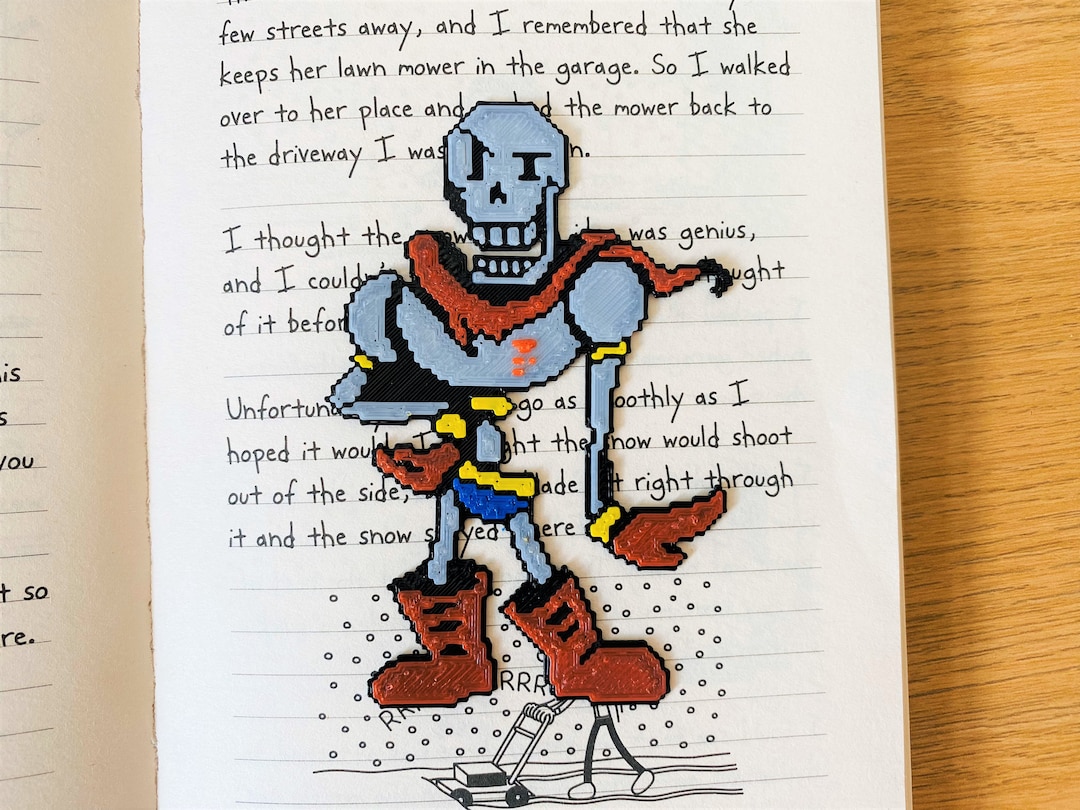 few streets away, and I remembered that she
keeps her lawn mower in the garage. So I walked
over to her place and the mower back to
the driveway I was
I thought the was genius,
and I could
of it befor
Unfortun go as oothly as I
hoped it wou I ght the now would shoot
out of the side, lade t right through
it and the snow s yed ere
is
s
you
t so
re.
RRR